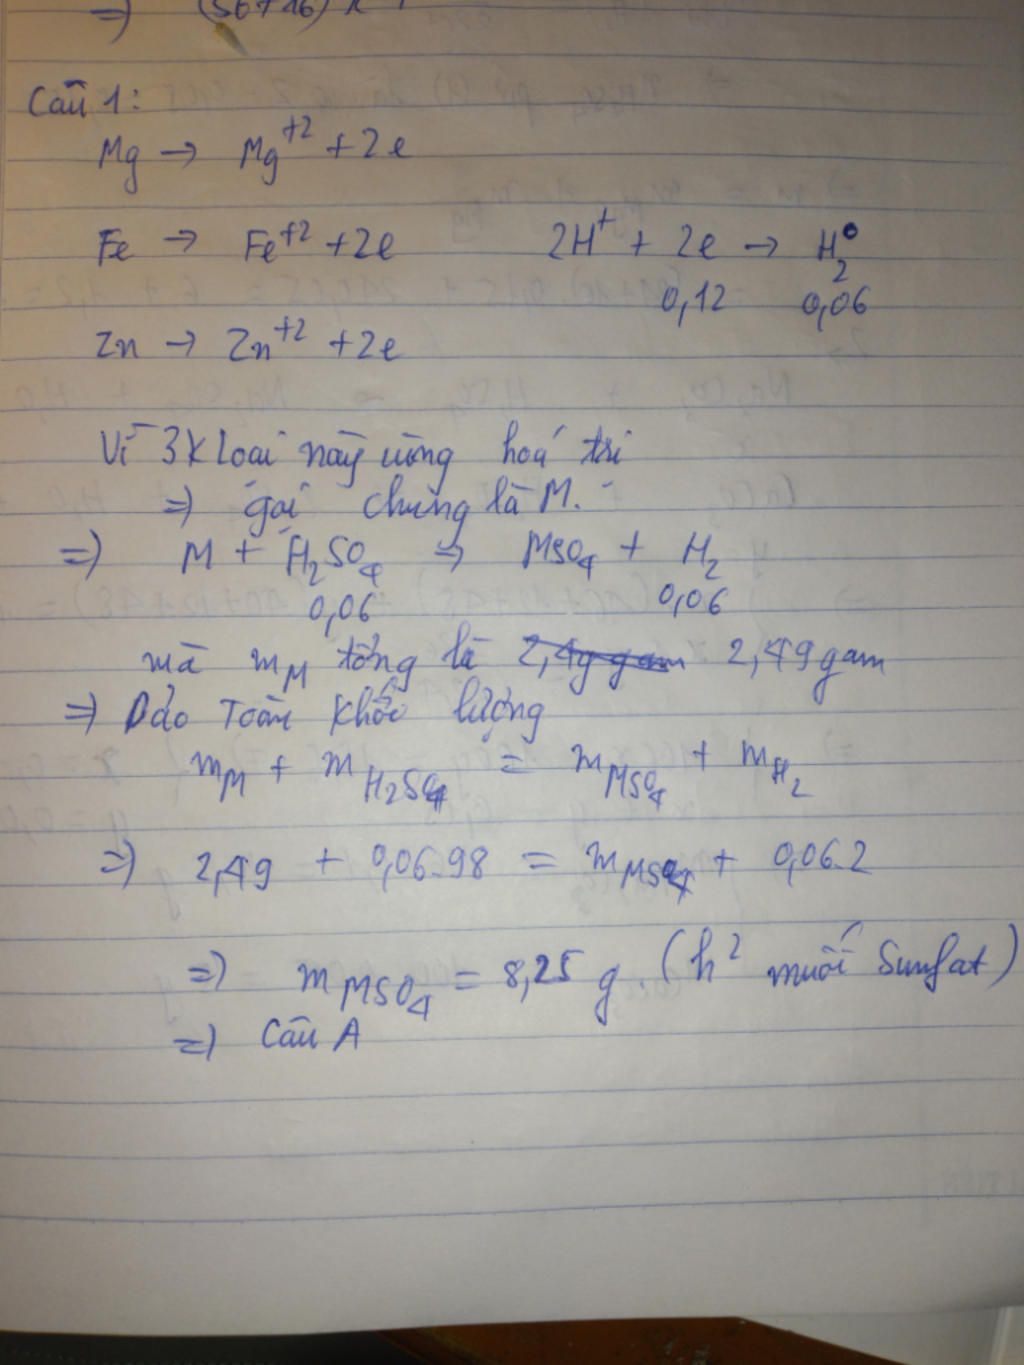 =) (56+16) x
Câu 1:
Mg → Mg⁺² + 2e
Fe → Fe⁺² + 2e 2H⁺ + 2e → H₂⁰
0,12 0,06
Zn → Zn⁺² + 2e
Vì 3 kloại này cùng hoá trị
=) gọi chung là M.
=) M + H₂SO₄ → MSO₄ + H₂
0,06 0,06
mà mM tổng là 2,49 gam 2,49 gam
=) Bảo Toàn Khối lượng
mM + mH₂SO₄ = mMSO₄ + mH₂
=) 2,49 + 0,06.98 = mMSO₄ + 0,06.2
=) mMSO₄ = 8,25 g (h² muối Sunfat)
=) Câu A